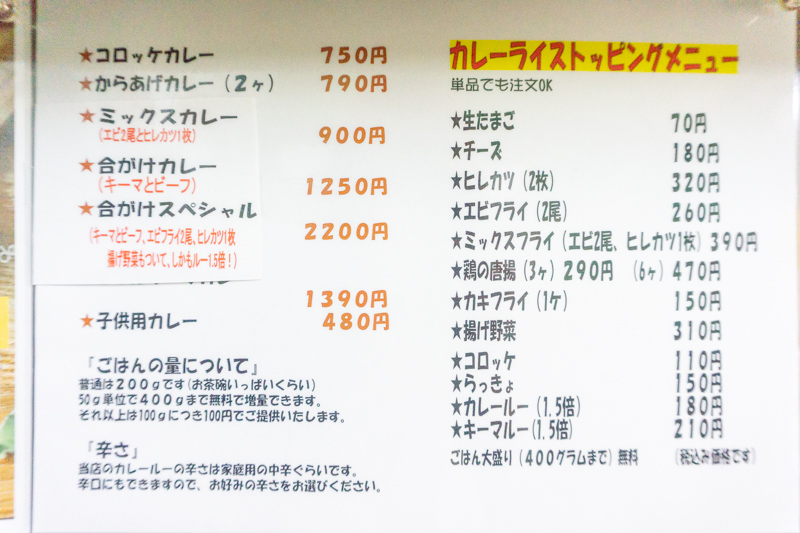 ★コロッケカレー 750円
★からあげカレー（2ヶ） 790円
★ミックスカレー
(エビ2尾とヒレカツ1枚) 900円
★合がけカレー
(キーマとビーフ) 1250円
★合がけスペシャル 2200円
(キーマとビーフ、エビフライ2尾、ヒレカツ1枚
揚げ野菜もついて、しかもルー1.5倍！)
1390円
★子供用カレー 480円
「ごはんの量について」
普通は200gです(お茶碗いっぱいくらい)
50g単位で400gまで無料で増量できます。
それ以上は100gにつき100円でご提供いたします。
「辛さ」
当店のカレールーの辛さは家庭用の中辛ぐらいです。
辛口にもできますので、お好みの辛さをお選びください。
カレーライストッピングメニュー
単品でも注文OK
★生たまご 70円
★チーズ 180円
★ヒレカツ（2枚） 320円
★エビフライ（2尾） 260円
★ミックスフライ（エビ2尾、ヒレカツ1枚） 390円
★鶏の唐揚（3ヶ）290円 （6ヶ）470円
★カキフライ（1ケ） 150円
★揚げ野菜 310円
★コロッケ 110円
★らっきょ 150円
★カレールー（1.5倍） 180円
★キーマルー(1.5倍) 210円
ごはん大盛り（400グラムまで）無料 （税込み価格です）